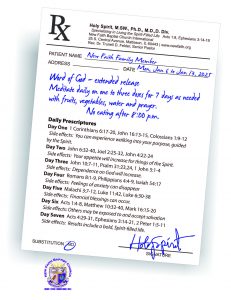 Rx
Holy Spirit, M.SW., Ph.D., M.D., D.D., Div.
Specializing in Living the Spirit-Filled Life
New Faith Baptist Church International
25 S. Central Avenue, Matteson, IL 60443
Rev. Dr. Trunell D. Felder, Senior Pastor
PATIENT NAME New Faith Family Member
ADDRESS
DATE Mon, Jan 6 to Jan 13, 2025
Word of God - extended release
Meditate daily on one to three doses for 7 days as needed
with fruits, vegetables, water and prayer.
No eating after 8:00 p.m.
Daily Prescriptures
Day One 1 Corinthians 6:17-20, John 16:13-15, Colossians 1:9-12
Side effects: You can experience walking into your purpose, guided
by the Spirit.
Day Two John 6:32-40, Joel 2:25-32, John 4:22-24
Side effects: Your appetite will increase for things of the Spirit.
Day Three
John 10:7-11, Psalm 31:23-24, 1 John 5:1-4
Side effects: Dependence on God will increase.
Day Four Romans 8:1-9, Philippians 4:4-9, Isaiah 56:17
Side effects: Feelings of anxiety can disappear
Day Five Malachi 3:7-12, Luke 11:42, Luke 6:30-38
Side effects: Increased financial ability.
Day Six Acts 1:4-8, Matthew 10:32-40, Mark 16:15-20
Side effects: Others may be exposed to and accept salvation
Day Seven Acts 4:29-31, Ephesians 3:14-21, 2 Peter 1:5-11
Side effects: Results include a bold, Spirit-filled life.
SUBSTITUTION
Holy Spirit
SIGNATURE